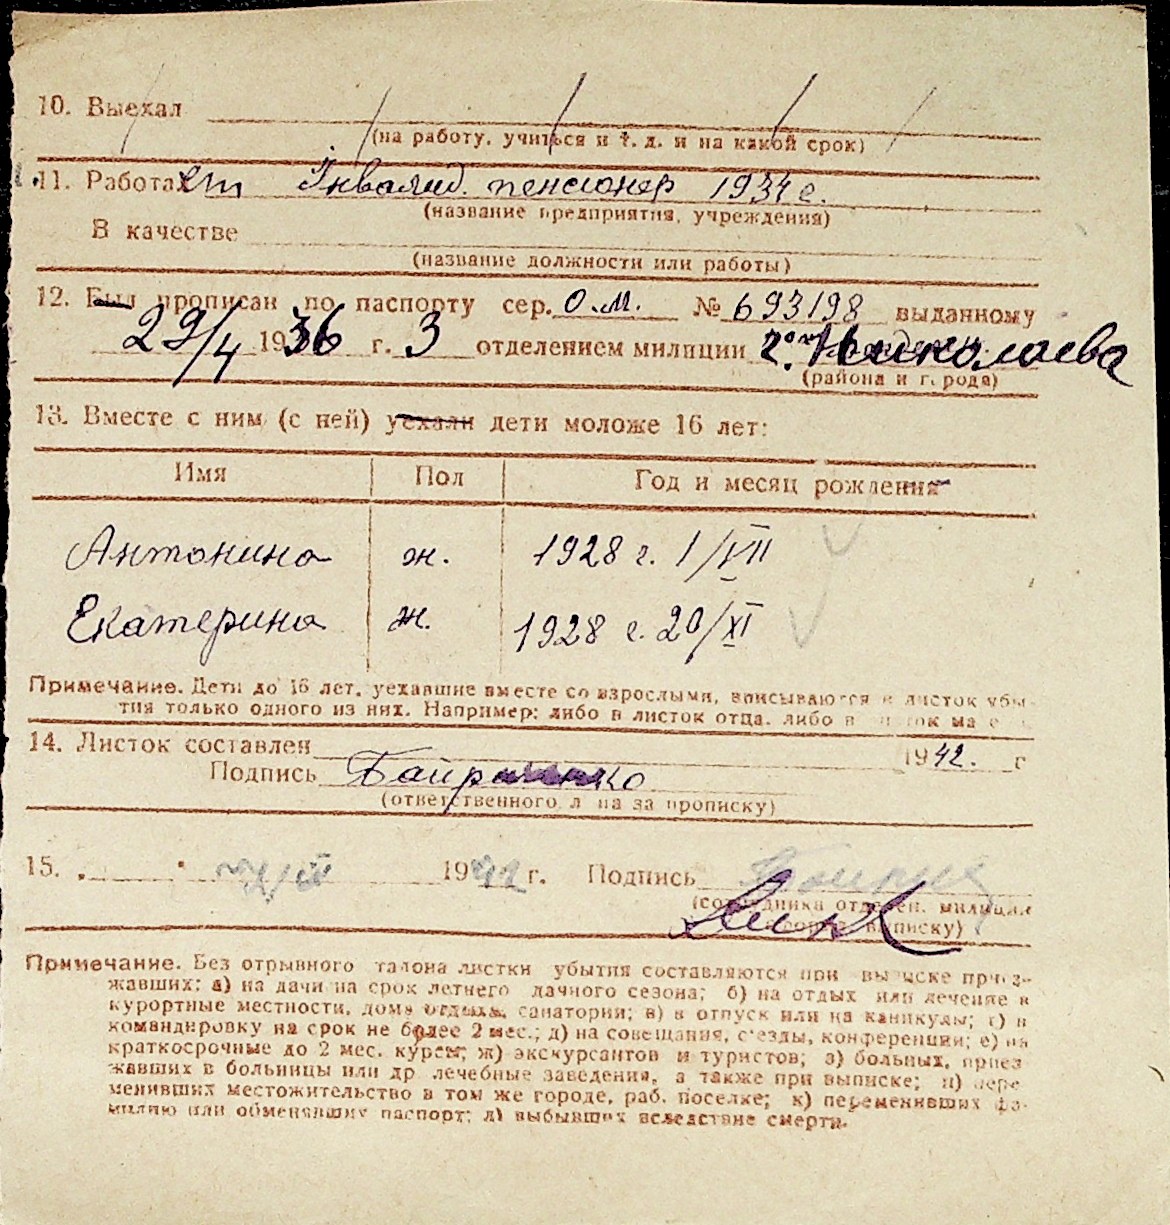 10. Выехал
(на работу, учиться и т. д. и на какой срок)
11. Работает Інвалид. пенсіонер 1934 г.
(название предприятия, учреждения)
В качестве
(название должности или работы)
12. Был прописан по паспорту сер. О.М. № 693198 выданному
29/4 1936 г. 3 отделением милиции г. Николаева
(района и города)
13. Вместе с ним (с ней) уехали дети моложе 16 лет:
Имя Пол Год и месяц рождения
Антонина ж. 1928 г. 1/VII
Екатерина ж. 1928 г. 20/XI
Примечание. Дети до 16 лет, уехавшие вместе со взрослыми, вписываются в листок убы-
тия только одного из них. Например: либо в листок отца, либо в листок матери.
14. Листок составлен 1942. г
Подпись
(ответственного лица за прописку)
15. 1942 г. Подпись
(сотрудника отделен. милиции
выписку)
Примечание. Без отрывного талона листки убытия составляются при выписке приез-
жавших: а) на дачи на срок летнего дачного сезона; б) на отдых или лечение в
курортные местности, дома отдыха, санатории; в) в отпуск или на каникулы; г) в
командировку на срок не более 2 мес.; д) на совещания, с'езды, конференции; е) на
краткосрочные до 2 мес. курсы; ж) экскурсантов и туристов; з) больных, приез
жавших в больницы или др лечебные заведения, а также при выписке; и) пере
менивших местожительство в том же городе, раб. поселке; к) переменивших фа-
милию или обменявших паспорт; л) выбывших вследствие смерти.